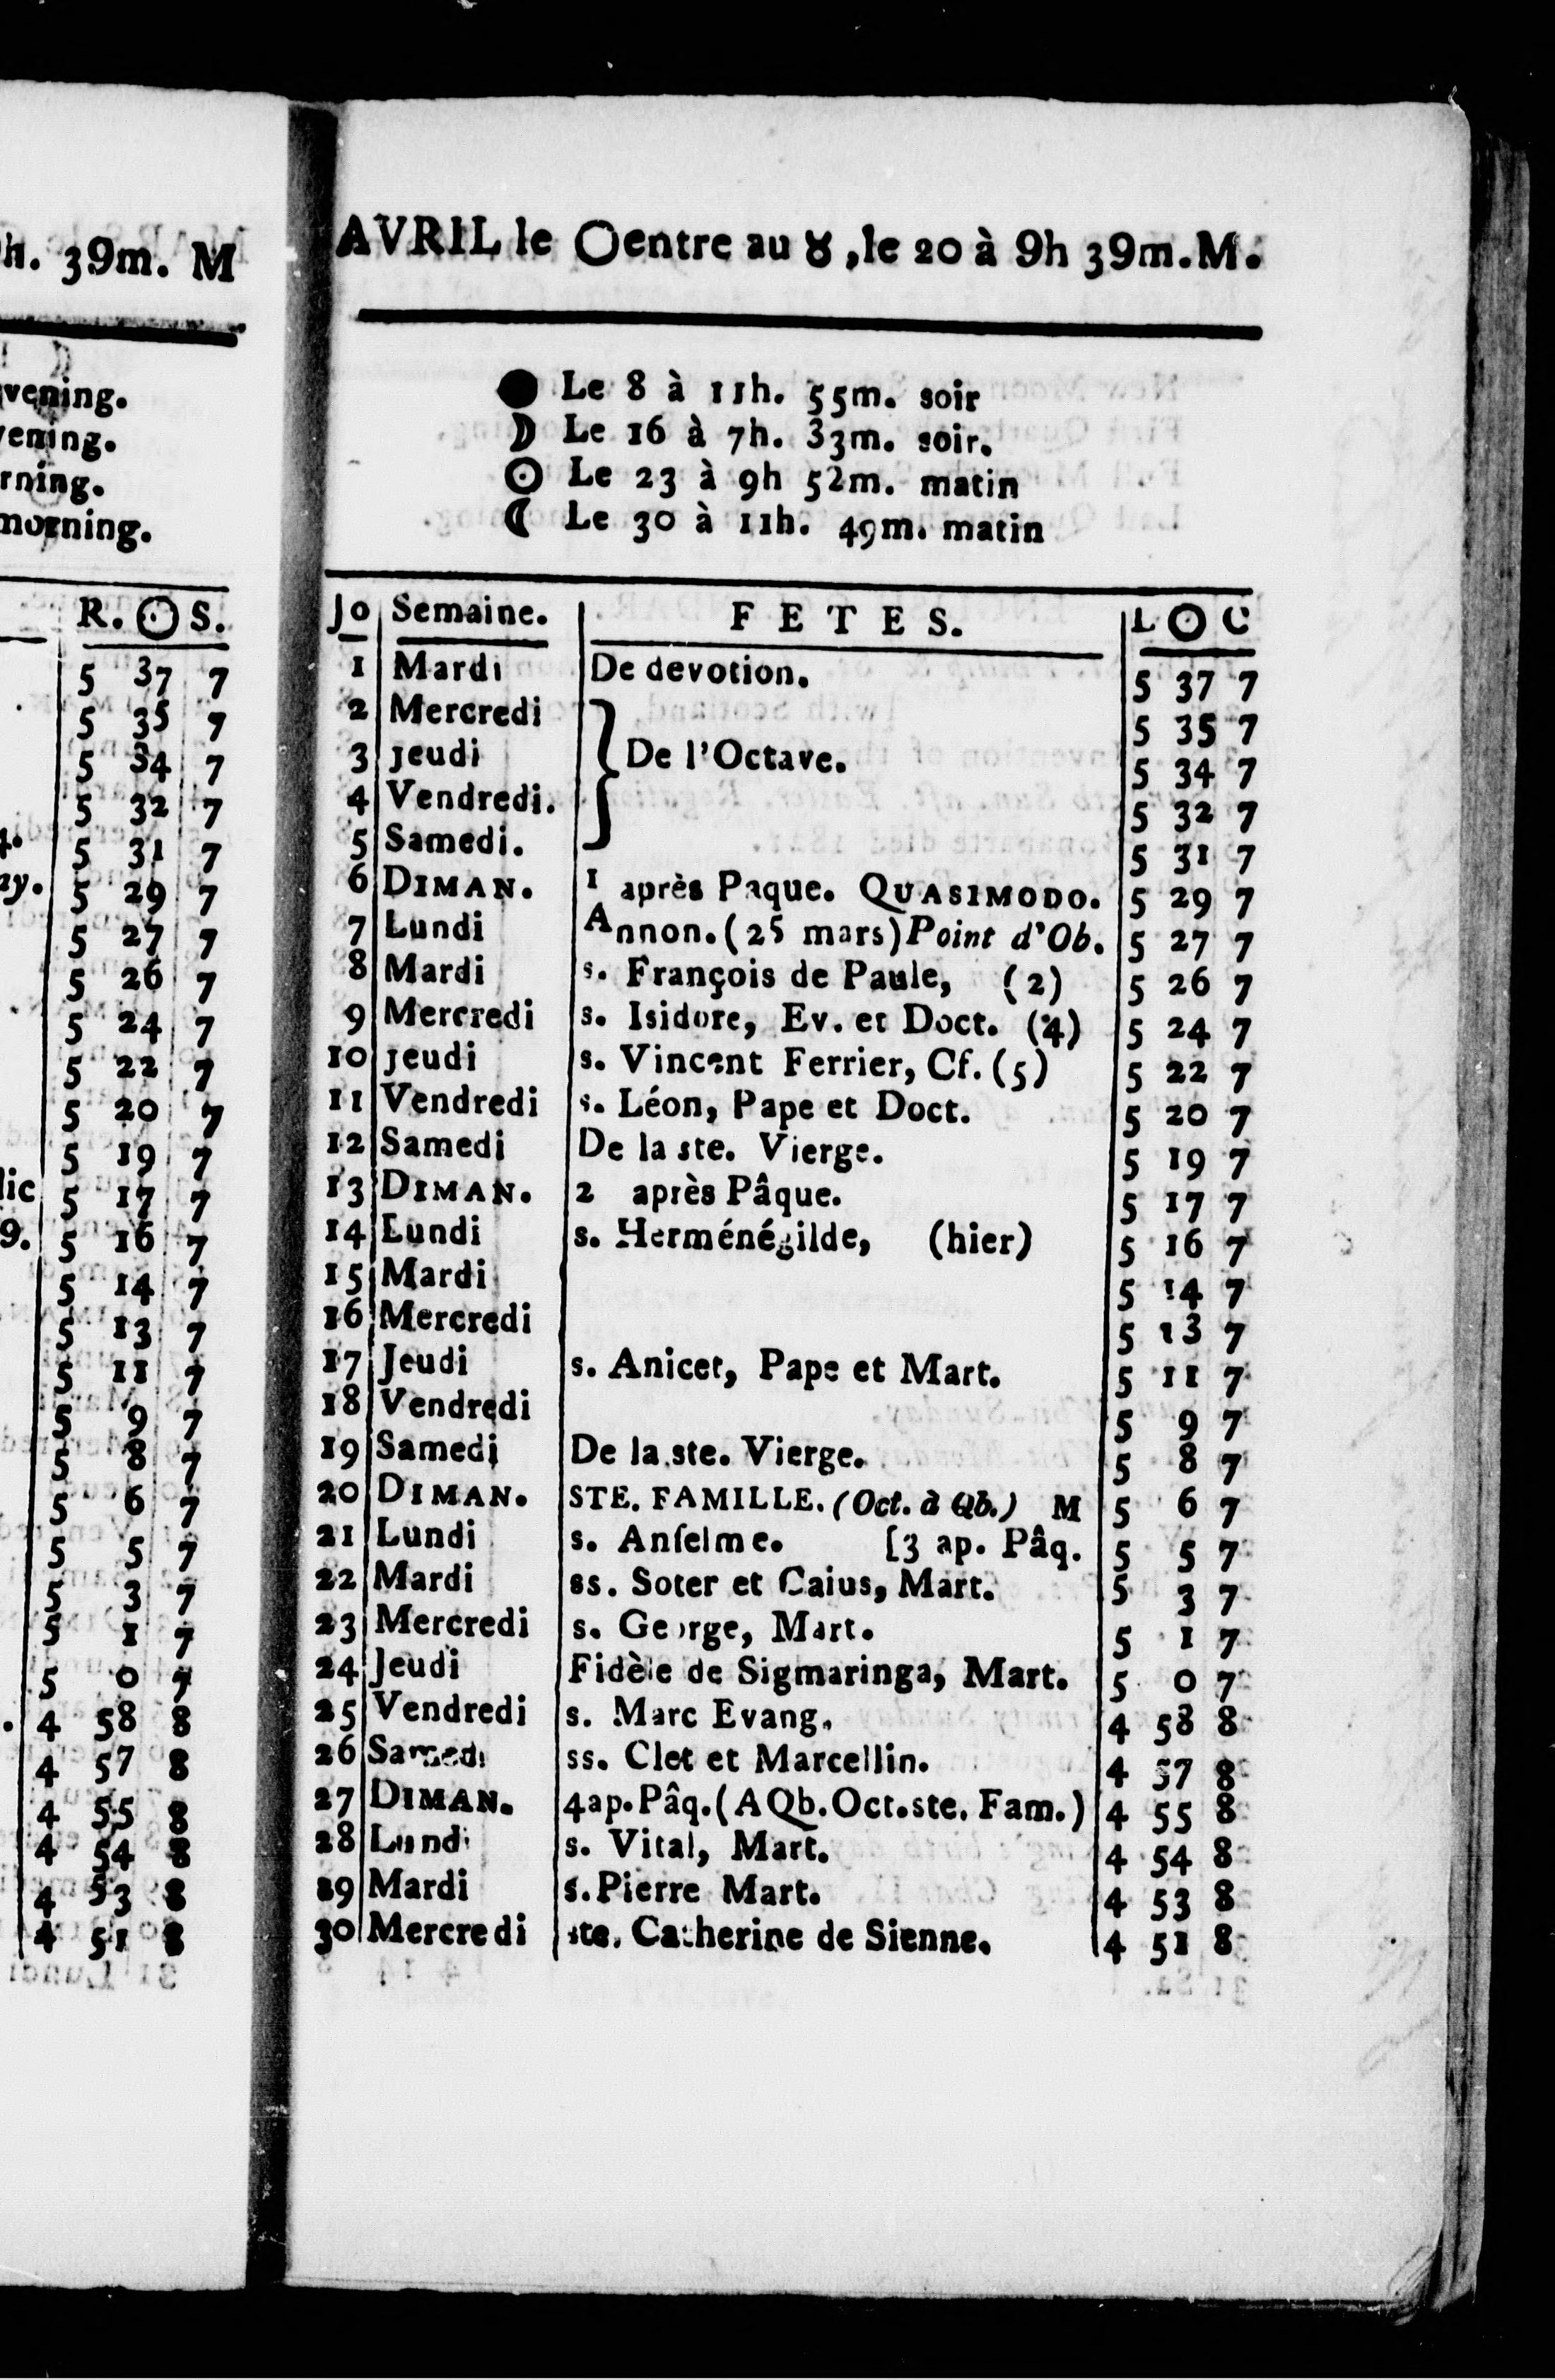 h. 39m. M
vening.
vening.
rning.
morning.
R. ☉ S.
5 37 7
5 35 7
5 34 7
5 32 7
5 31 7
ay. 5 29 7
5 27 7
5 26 7
5 24 7
5 22 7
5 20 7
5 19 7
lic 5 17 7
9. 5 16 7
5 14 7
5 13 7
5 11 7
5 9 7
5 8 7
5 6 7
5 5 7
5 3 7
5 1 7
5 0 7
4 58 8
4 57 8
4 55 8
4 54 8
4 53 8
4 51 8
AVRIL le ◯entre au ♉,le 20 à 9h 39m.M.
● Le 8 à 11h. 55m. soir
☽ Le 16 à 7h. 33m. soir.
☉ Le 23 à 9h 52m. matin
☾ Le 30 à 11h. 49m. matin
Jo Semaine. FETES. L ☉ C
1 Mardi De devotion. 5 37 7
2 Mercredi 5 35 7
3 jeudi De l'Octave. 5 34 7
4 Vendredi. 5 32 7
5 Samedi. 5 31 7
6 DIMAN. 1 après Paque. QUASIMODO. 5 29 7
7 Lundi Annon. (25 mars) Point d'Ob. 5 27 7
8 Mardi s. François de Paule, (2) 5 26 7
9 Mercredi s. Isidore, Ev. et Doct. (4) 5 24 7
10 jeudi s. Vincent Ferrier, Cf. (5) 5 22 7
11 Vendredi s. Léon, Pape et Doct. 5 20 7
12 Samedi De la ste. Vierge. 5 19 7
13 DIMAN. 2 après Pâque. 5 17 7
14 Lundi s. Herménégilde, (hier) 5 16 7
15 Mardi 5 14 7
16 Mercredi 5 13 7
17 Jeudi s. Anicet, Pape et Mart. 5 11 7
18 Vendredi 5 9 7
19 Samedi De la ste. Vierge. 5 8 7
20 DIMAN. STE. FAMILLE. (Oct. à Qb.) M 5 6 7
21 Lundi s. Anselme. [3 ap. Pâq. 5 5 7
22 Mardi ss. Soter et Caius, Mart. 5 3 7
23 Mercredi s. George, Mart. 5 1 7
24 Jeudi Fidèle de Sigmaringa, Mart. 5 0 7
25 Vendredi s. Marc Evang. 4 58 8
26 Samedi ss. Clet et Marcellin. 4 57 8
27 DIMAN. 4ap. Pâq. (A Qb. Oct. ste. Fam.) 4 55 8
28 Lundi s. Vital, Mart. 4 54 8
29 Mardi s. Pierre Mart. 4 53 8
30 Mercredi ste. Catherine de Sienne. 4 51 8